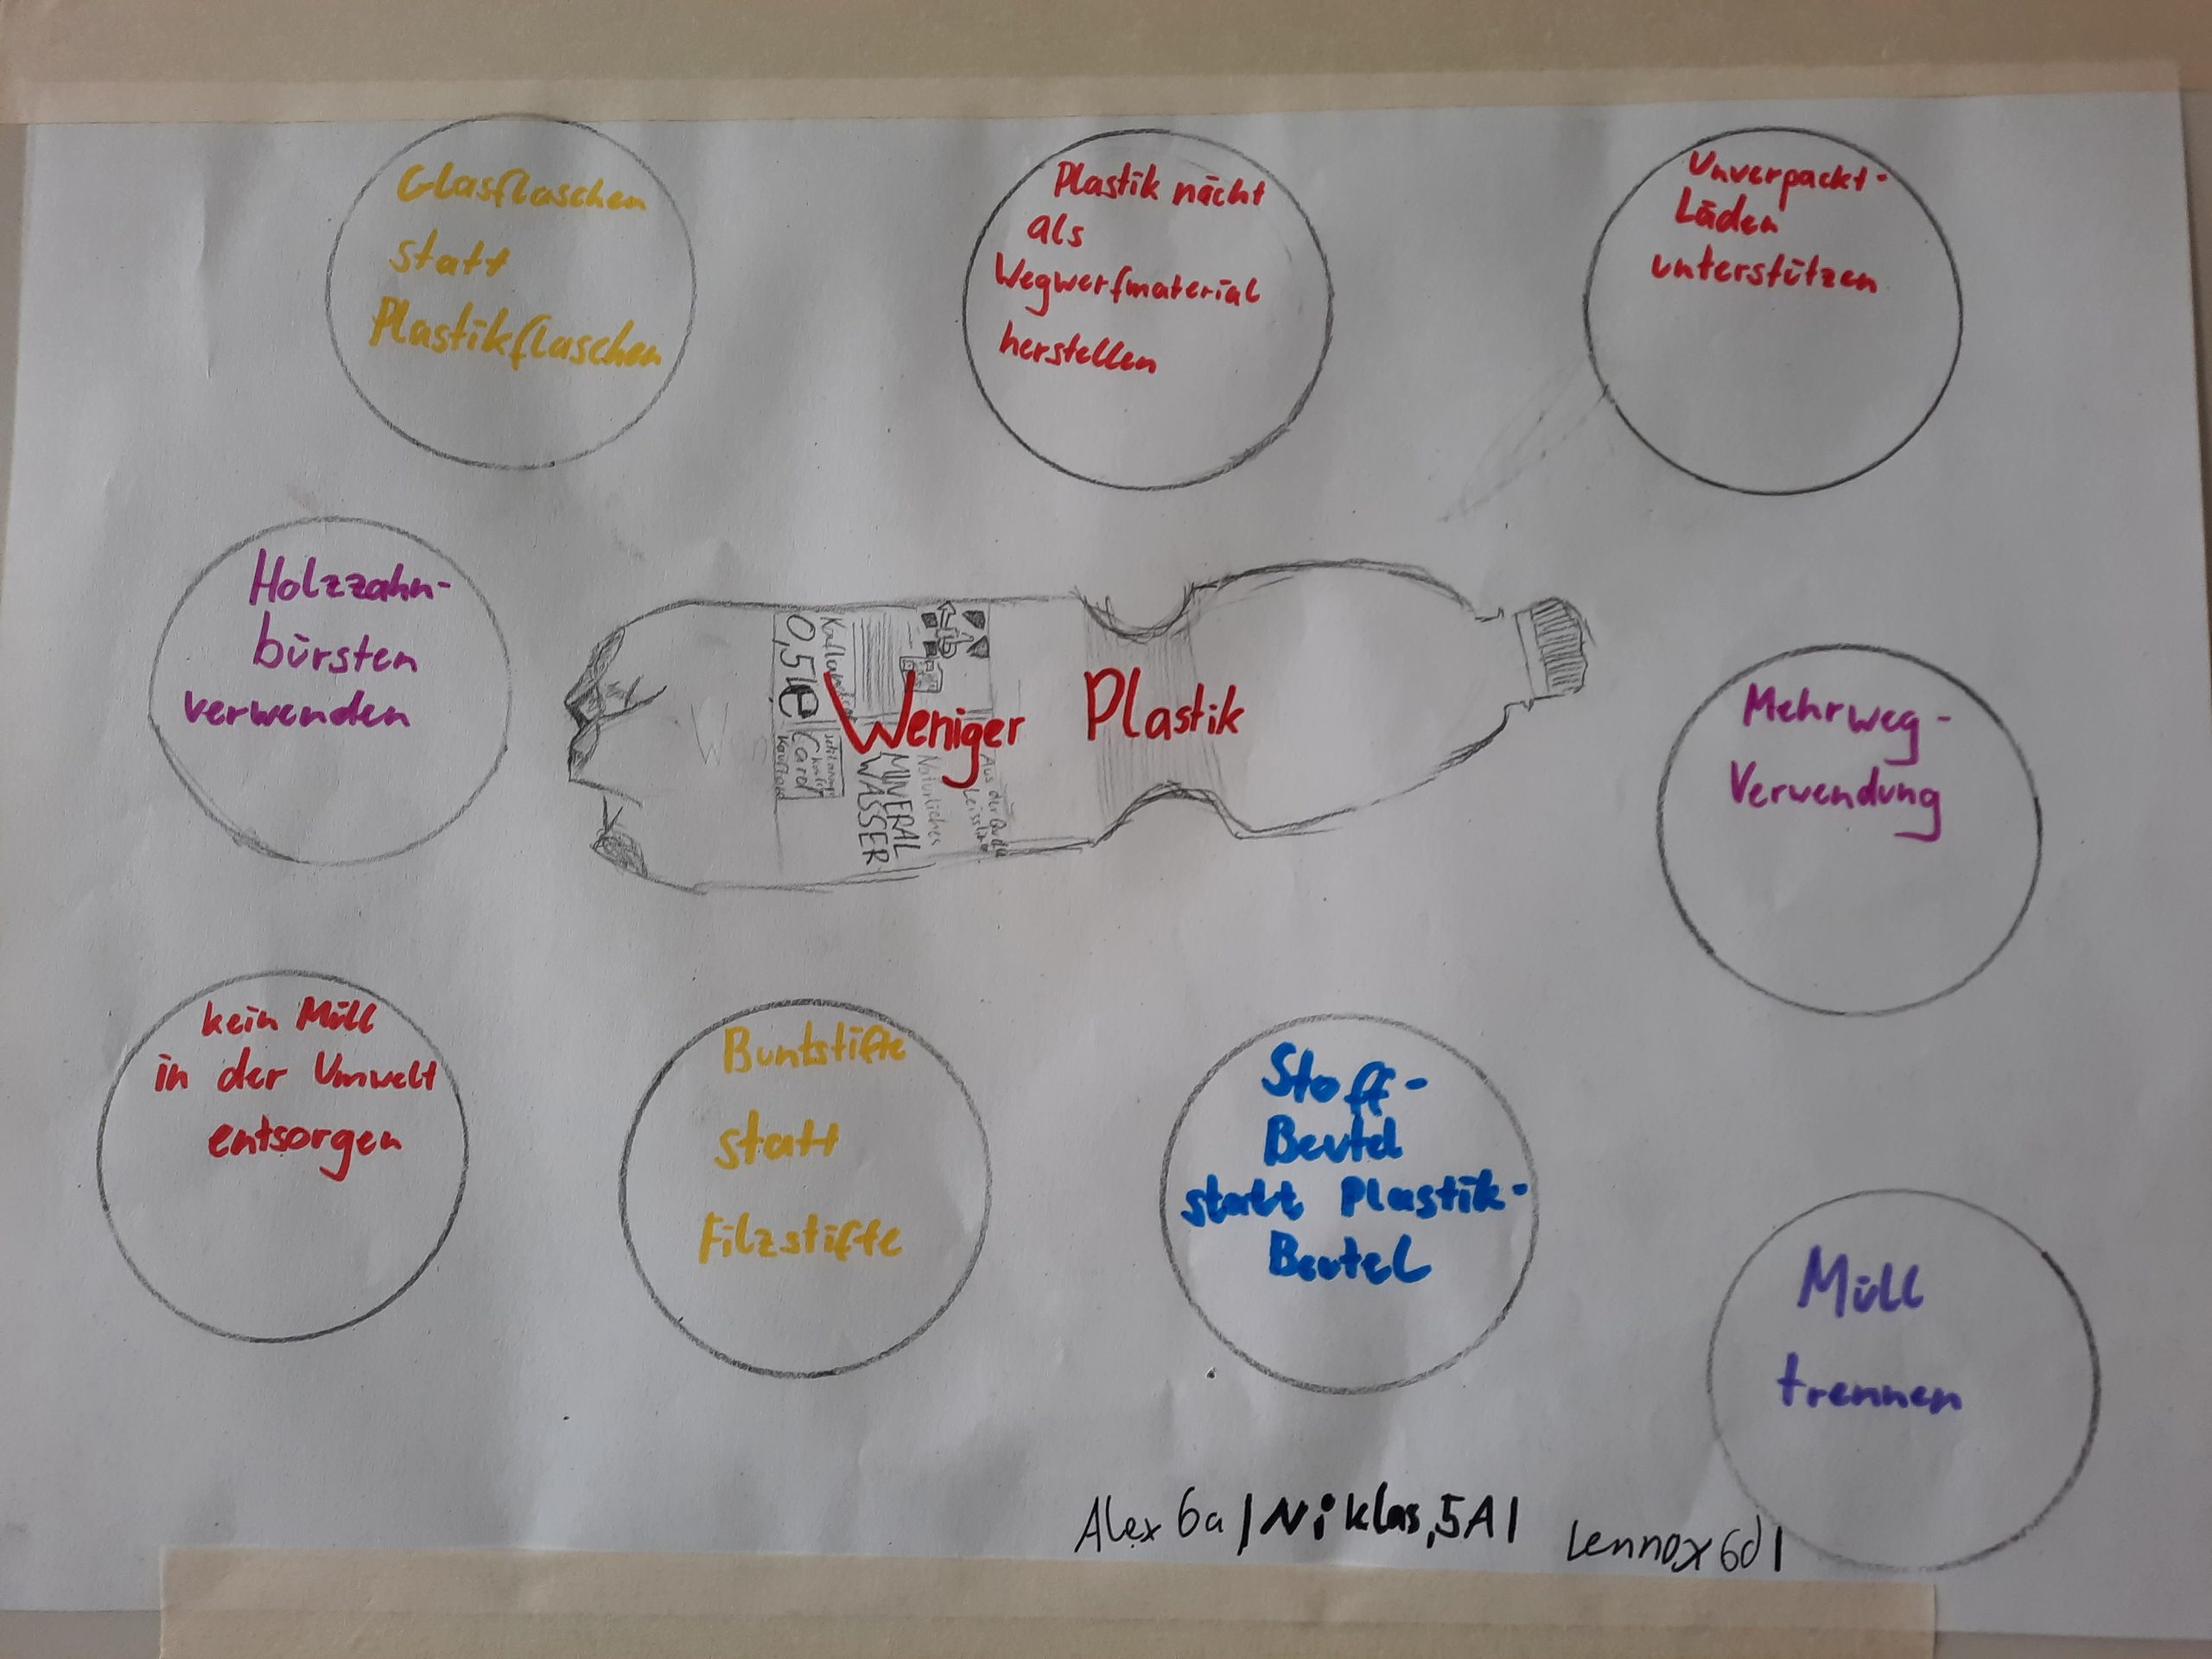 Glasflaschen
statt
Plastikflaschen
Plastik nicht
als
Wegwerfmaterial
herstellen
Unverpackt-
Läden
unterstützen
Holzzahn-
bürsten
verwenden
Weniger Plastik
0,5l e
Card
MINERAL
WASSER
Natürliches
Aus der
Mehrweg-
Verwendung
kein Müll
in der Umwelt
entsorgen
Buntstifte
statt
Filzstifte
Stoff-
Beutel
statt Plastik-
Beutel
Müll
trennen
Alex 6a | Niklas, 5A | Lennox 6d |